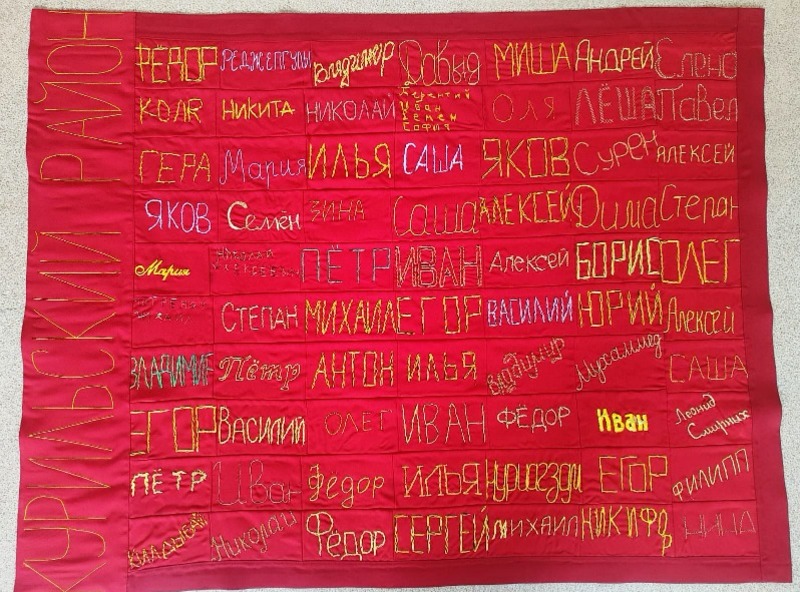 КУРИЛЬСКИЙ РАЙОН
ФЁДОР РЕДЖЕПГУЛЫ Владимир Давыд МИША АНДРЕЙ Елена
КОЛЯ НИКИТА НИКОЛАЙ Терентий Иван Семен София ОЛЯ ЛЁША Павел
ГЕРА Мария ИЛЬЯ САША ЯКОВ Сурен АЛЕКСЕЙ
ЯКОВ Семён ЗИНА Саша АЛЕКСЕЙ Дима Степан
Мария ПЁТР ИВАН Алексей БОРИС ОЛЕГ
СТЕПАН МИХАИЛ ЕГОР ВАСИЛИЙ ЮРИЙ Алексей
ВЛАДИМИР Пётр АНТОН ИЛЬЯ Владимир Мухаммед САША
ЕГОР ВАСИЛИЙ ОЛЕГ ИВАН ФЁДОР Иван Леонид Смирных
ПЁТР Иван Фёдор ИЛЬЯ ЕГОР ФИЛИПП
Николай Фёдор СЕРГЕЙ МИХАИЛ НИКИФОР НИНА